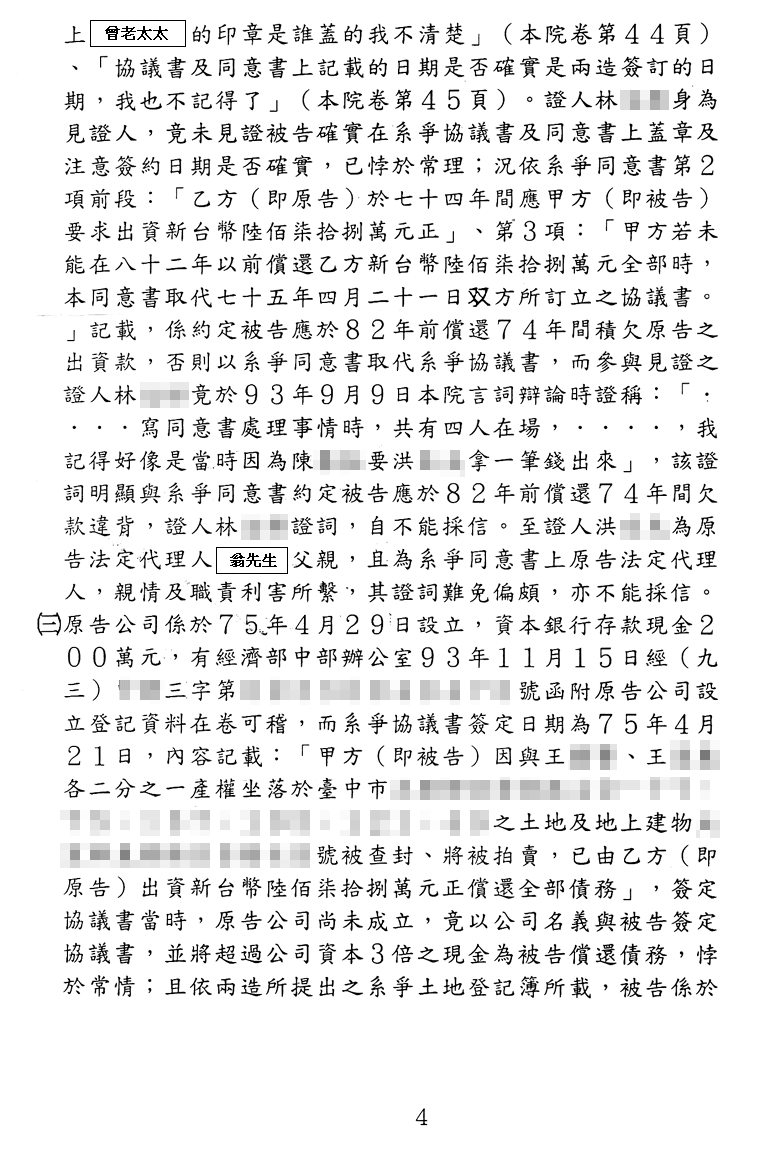 上曾老太太的印章是誰蓋的我不清楚」（本院卷第４４頁）
、「協議書及同意書上記載的日期是否確實是兩造簽訂的日
期，我也不記得了」（本院卷第４５頁）。證人林身為
見證人，竟未見證被告確實在系爭協議書及同意書上蓋章及
注意簽約日期是否確實，已悖於常理；況依系爭同意書第２
項前段：「乙方（即原告）於七十四年間應甲方（即被告）
要求出資新台幣陸佰柒拾捌萬元正」、第３項：「甲方若未
能在八十二年以前償還乙方新台幣陸佰柒拾捌萬元全部時，
本同意書取代七十五年四月二十一日双方所訂立之協議書。
」記載，係約定被告應於８２年前償還７４年間積欠原告之
出資款，否則以系爭同意書取代系爭協議書，而參與見證之
證人林竟於９３年９月９日本院言詞辯論時證稱：「．
．．．寫同意書處理事情時，共有四人在場，．．．．，我
記得好像是當時因為陳要洪拿一筆錢出來」，該證
詞明顯與系爭同意書約定被告應於８２年前償還７４年間欠
款違背，證人林證詞，自不能採信。至證人洪為原
告法定代理人翁先生父親，且為系爭同意書上原告法定代理
人，親情及職責利害所繫，其證詞難免偏頗，亦不能採信。
㈢原告公司係於７５年４月２９日設立，資本銀行存款現金２
００萬元，有經濟部中部辦公室９３年１１月１５日經（九
三）三字第號函附原告公司設
立登記資料在卷可稽，而系爭協議書簽定日期為７５年４月
２１日，內容記載：「甲方（即被告）因與王、王
各二分之一產權坐落於臺中市
之土地及地上建物
號被查封、將被拍賣，已由乙方（即
原告）出資新台幣陸佰柒拾捌萬元正償還全部債務」，簽定
協議書當時，原告公司尚未成立，竟以公司名義與被告簽定
協議書，並將超過公司資本３倍之現金為被告償還債務，悖
於常情；且依兩造所提出之系爭土地登記簿所載，被告係於
4